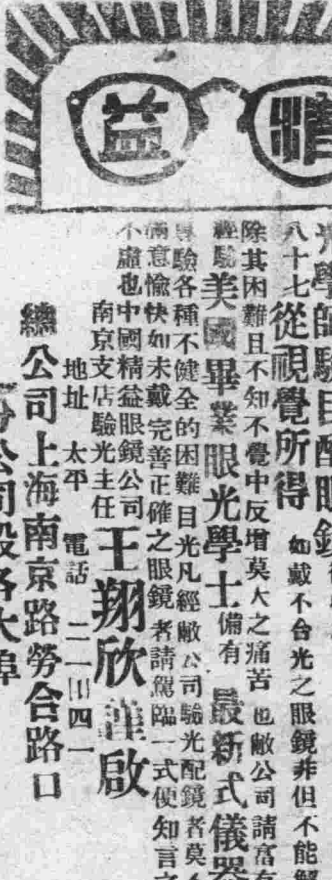 精益
光學師驗目配眼鏡
八十七從視覺所得 如戴不合光之眼鏡非但不能解
除其困難且不知不覺中反增莫大之痛苦 也敝公司請富有
經驗美國畢業眼光學士備有 最新式儀器
專驗各種不健全的困難目光凡經敝公司驗光配鏡者莫不
滿意愉快如未戴完善正確之眼鏡者請駕臨一式便知言之
不虛也中國精益眼鏡公司
南京支店驗光主任 王翔欣謹啟
地址 太平 電話 二一川四一
總公司上海南京路勞合路口
分公司設各大埠